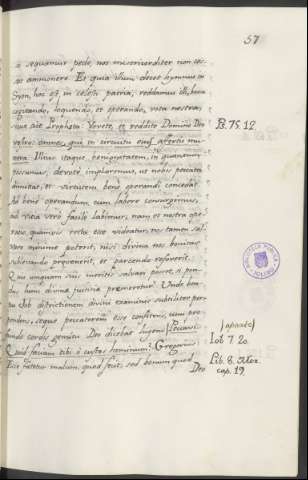 57
à sequamur pede, nos misericorditer non ces-
sat admonere. Et quia illum decet hymnus in
Syon, hoc est, in celesti patria, reddamus illi, bene
cogitando, loquendo, et operando, vota nostra,
sicut ait Propheta: Vovete, et reddite Domino Deo
vestro: omnes, qui in circuitu eius affertis mu-
nera. Illius itaque benignitatem, in quantum
possumus, devote imploremus, ut nobis peccata
dimittat, et virtutem bene operandi concedat.
Ad bene operandum cum labore consurgimus,
ad vitia vero facile labimur, nam et nostra ope-
ratio, quamvis recta esse videatur, nos tamen sal-
vare minime poterit, nisi divina nos bonitas
subveniendo prevenerit, et parcendo refoverit.
Quis unquam suis meritis salvari posset, si pon-
dus hunc divinae iustitiae premeretur? Unde bea-
tus Iob districtionem divini examinis subtiliter per-
pendens, seque peccatorem esse confitens, cum pro-
fundo cordis gemitu Deo dicebat lugens: Peccavi.
Quid faciam tibi ò custos hominum? Gregorius:
Ecce fatetur malum, quod fecit, sed bonum quod
Deo
Ps. 75. 12
(aparte)
Iob 7. 20.
Lib. 8. Mor.
cap. 19
BIBLIOTECA PUBLICA
TOLEDO